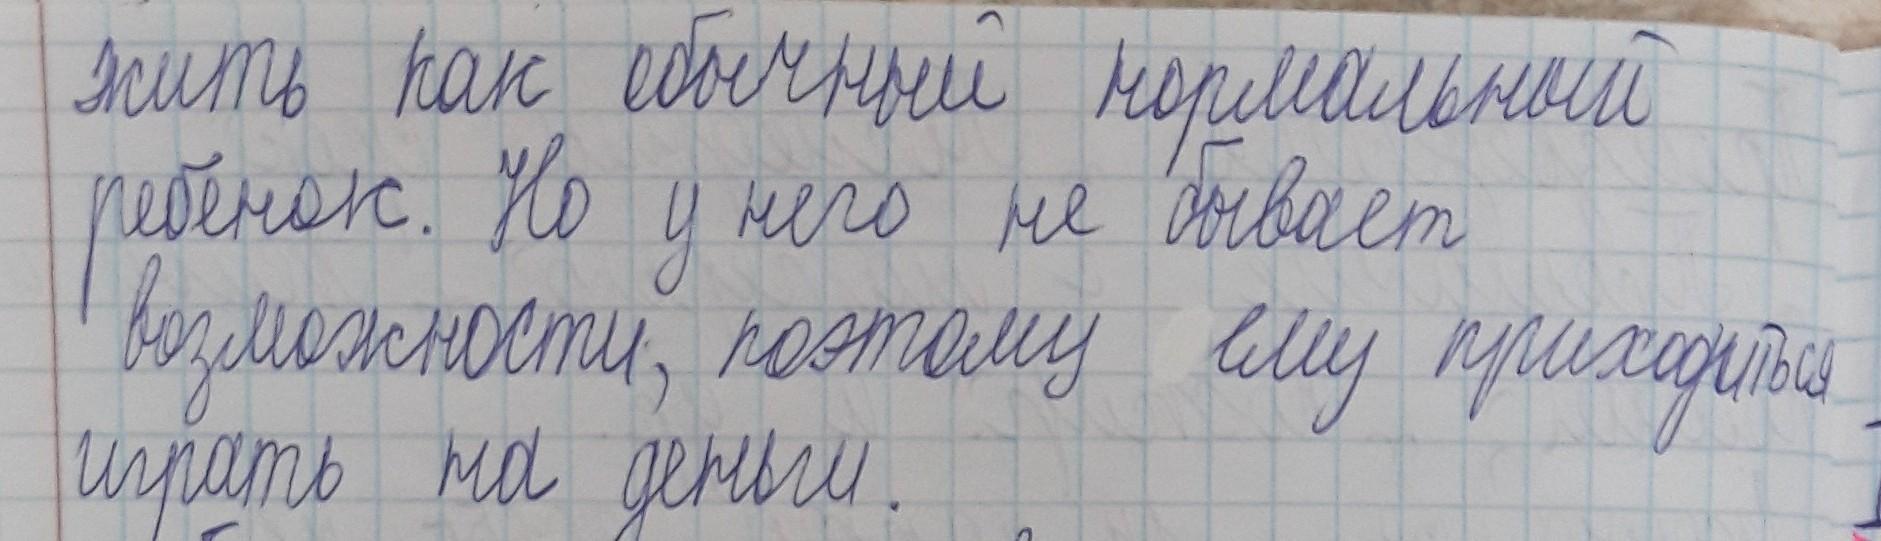 жить как обычный нормальный
ребенок. Но у него не бывает
возможности, поэтому ему приходиться
играть на деньги.